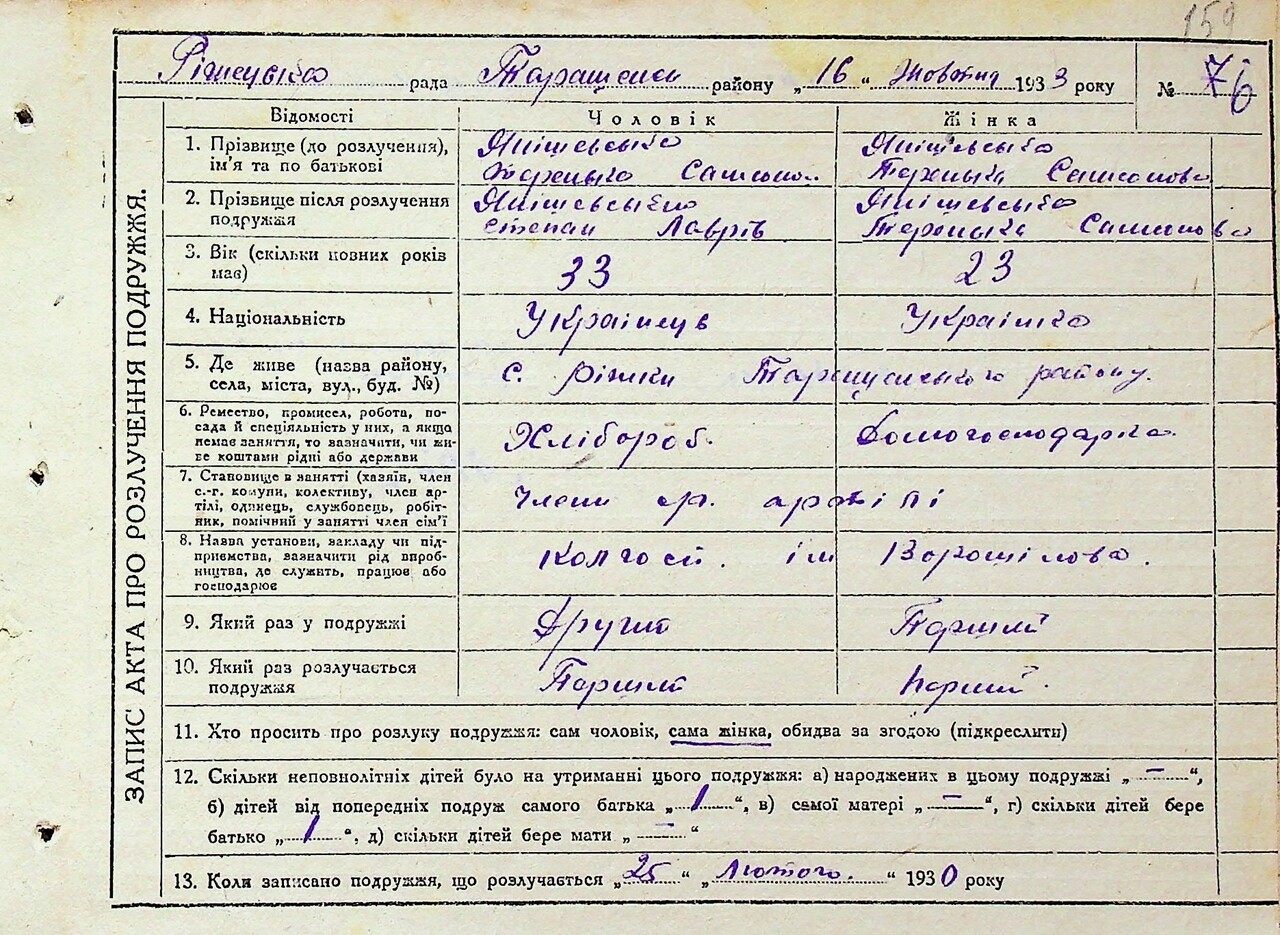 159
Ріжецька рада Таращенськ району „16“ Жовтня 1933 року № 76
ЗАПИС АКТА ПРО РОЗЛУЧЕННЯ ПОДРУЖЖЯ.
Відомості Чоловік Жінка
1. Прізвище (до розлучення), ім'я та по батькові
2. Прізвище після розлучення подружжя Степан Лаврів
3. Вік (скільки повних років має) 33 23
4. Національність Українець Українка
5. Де живе (назва району, села, міста, вул., буд. №) с. Ріжки Таращенського району.
6. Ремество, промисел, робота, посада й спеціяльність у них, а якщо немає заняття, то зазначити, чи живе коштами рідні або держави Хлібороб. Домогосподарка.
7. Становище в занятті (хазяїн, член с.-г. комуни, колективу, член артілі, одинець, службовець, робітник, помічний у занятті член сім'ї Члени ср. артілі
8. Назва установи, закладу чи підприємства, зазначити рід виробництва, де служить, працює або господарює Колгосп. ім Ворошілова.
9. Який раз у подружжі Другий Перший
10. Який раз розлучається подружжя Перший Перший.
11. Хто просить про розлуку подружжя: сам чоловік, сама жінка, обидва за згодою (підкреслити)
12. Скільки неповнолітніх дітей було на утриманні цього подружжя: а) народжених в цьому подружжі „ — “,
б) дітей від попередніх подруж самого батька „ 1 “, в) самої матері „ — “, г) скільки дітей бере
батько „ 1 “, д) скільки дітей бере мати „ — “
13. Коли записано подружжя, що розлучається „25“ „Лютого.“ 1930 року